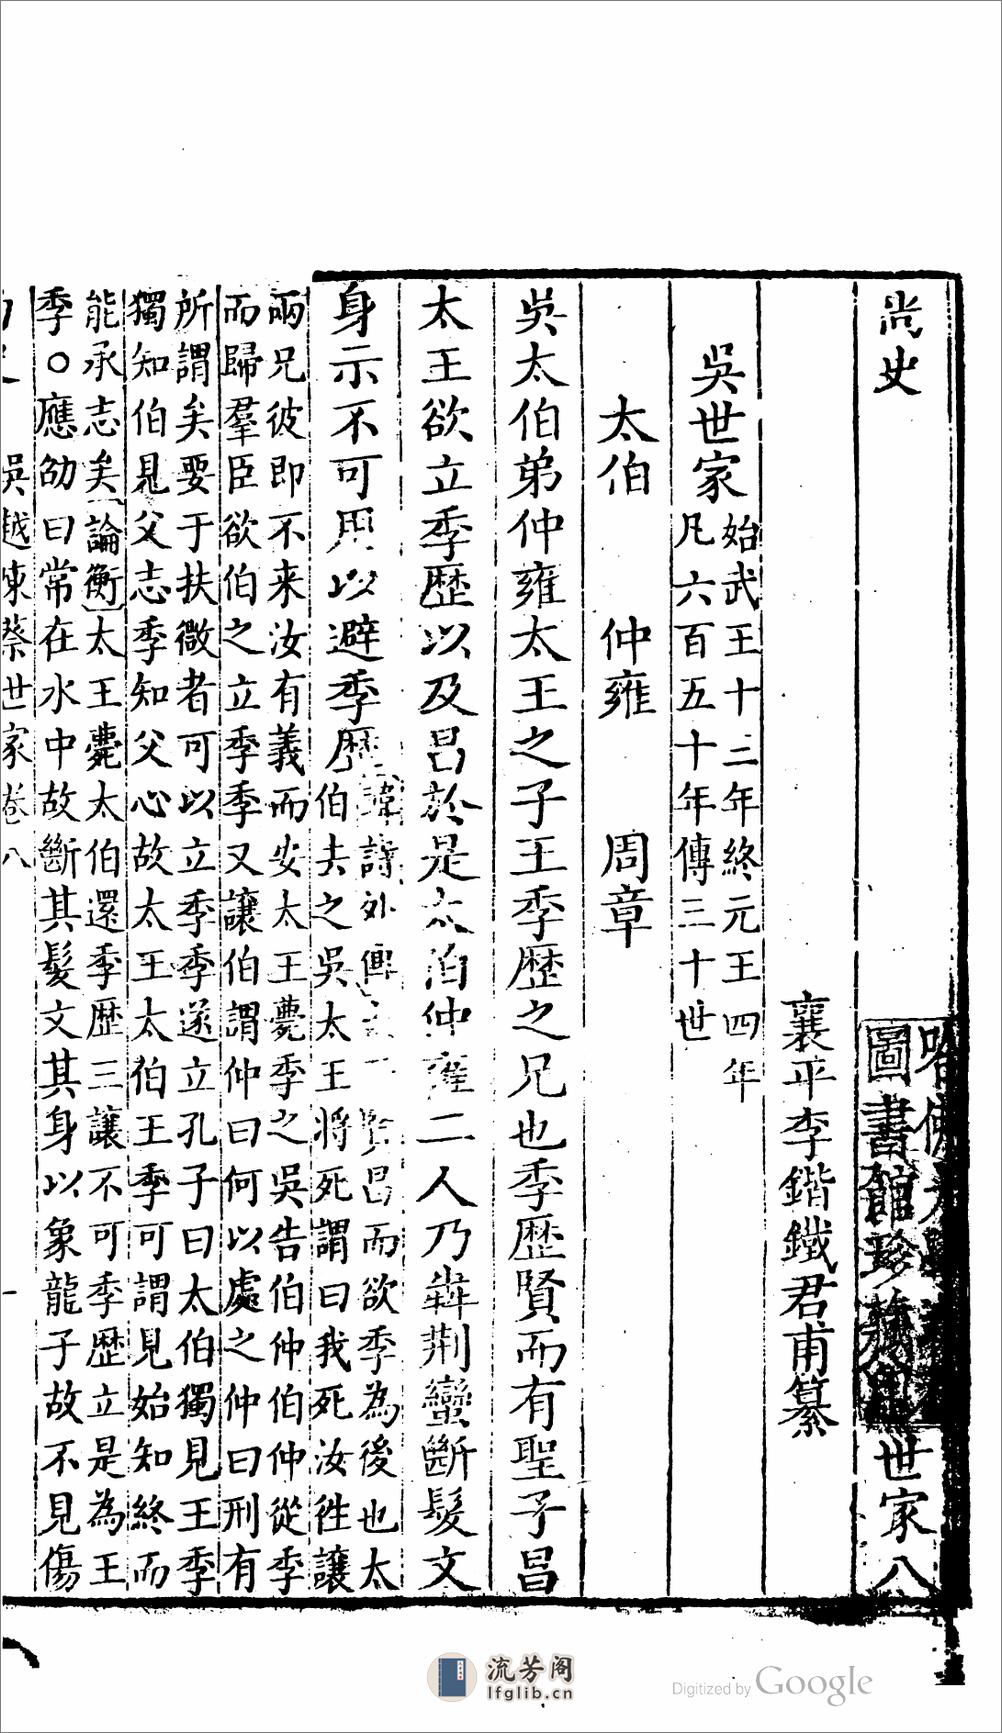 尚史　世家八
襄平李鍇鐵君甫纂
吳世家始武王十三年終元王四年
凡六百五十年傳三十世
太伯　仲雍　周章
吳太伯弟仲雍太王之子王季歷之兄也季歷賢而有聖子昌
太王欲立季歷以及昌於是太伯仲雍二人乃犇荆蠻斷髮文
身示不可用以避季歷
詩外傳 昌而欲季為後也太
伯去之吳太王將死謂曰我死汝徃讓
兩兄彼即不来汝有義而安太王薨季之吳告伯仲伯仲從季
而歸羣臣欲伯之立季季又讓伯謂仲曰何以處之仲曰刑有
所謂矣要于扶微者可以立季季遂立孔子曰太伯獨見王季
獨知伯見父志季知父心故太王太伯王季可謂見始知終而
能承志矣論衡太王薨太伯還季歷三讓不可季歷立是為王
季○應劭曰常在水中故斷其髮文其身以象龍子故不見傷
吳越陳蔡世家卷八　一
圖書館珍藏
流芳阁
lfglib.cn
Digitized by Google